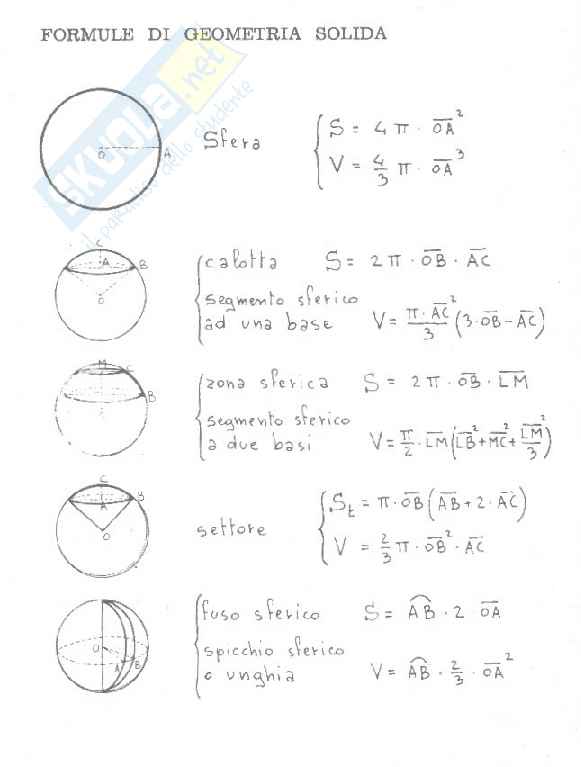 FORMULE DI GEOMETRIA SOLIDA
SKUOLA.net
il paradiso dello studente
O A
Sfera
S = 4 π · O̅A̅²
V = 4/3 π · O̅A̅³
C
A B
O
calotta S = 2 π · O̅B̅ · A̅C̅
segmento sferico
ad una base V = π·A̅C̅²/3 (3·O̅B̅ - A̅C̅)
M C
B
zona sferica S = 2 π · O̅B̅ · L̅M̅
segmento sferico
a due basi V = π/2 · L̅M̅ (L̅B̅² + M̅C̅² + L̅M̅²/3)
C
A B
O
settore
St = π · O̅B̅ (A̅B̅ + 2 · A̅C̅)
V = 2/3 π · O̅B̅² · A̅C̅
O
A B
fuso sferico S = A͡B · 2 O̅A̅
spicchio sferico
o unghia V = A͡B · 2/3 · O̅A̅²